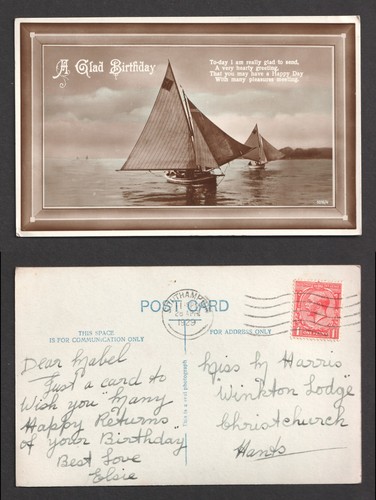 A Glad Birthday
To-day I am really glad to send,
A very hearty greeting,
That you may have a Happy Day
With many pleasures meeting.
POST CARD
THIS SPACE
IS FOR COMMUNICATION ONLY
FOR ADDRESS ONLY
SOUTHAMPTON
1929
This is a real photograph
Dear Mabel
Just a card to
Wish you "Many
Happy Returns
of your Birthday"
Best Love
Elsie
Miss M Harris
"Winkton Lodge"
Christchurch
Hants